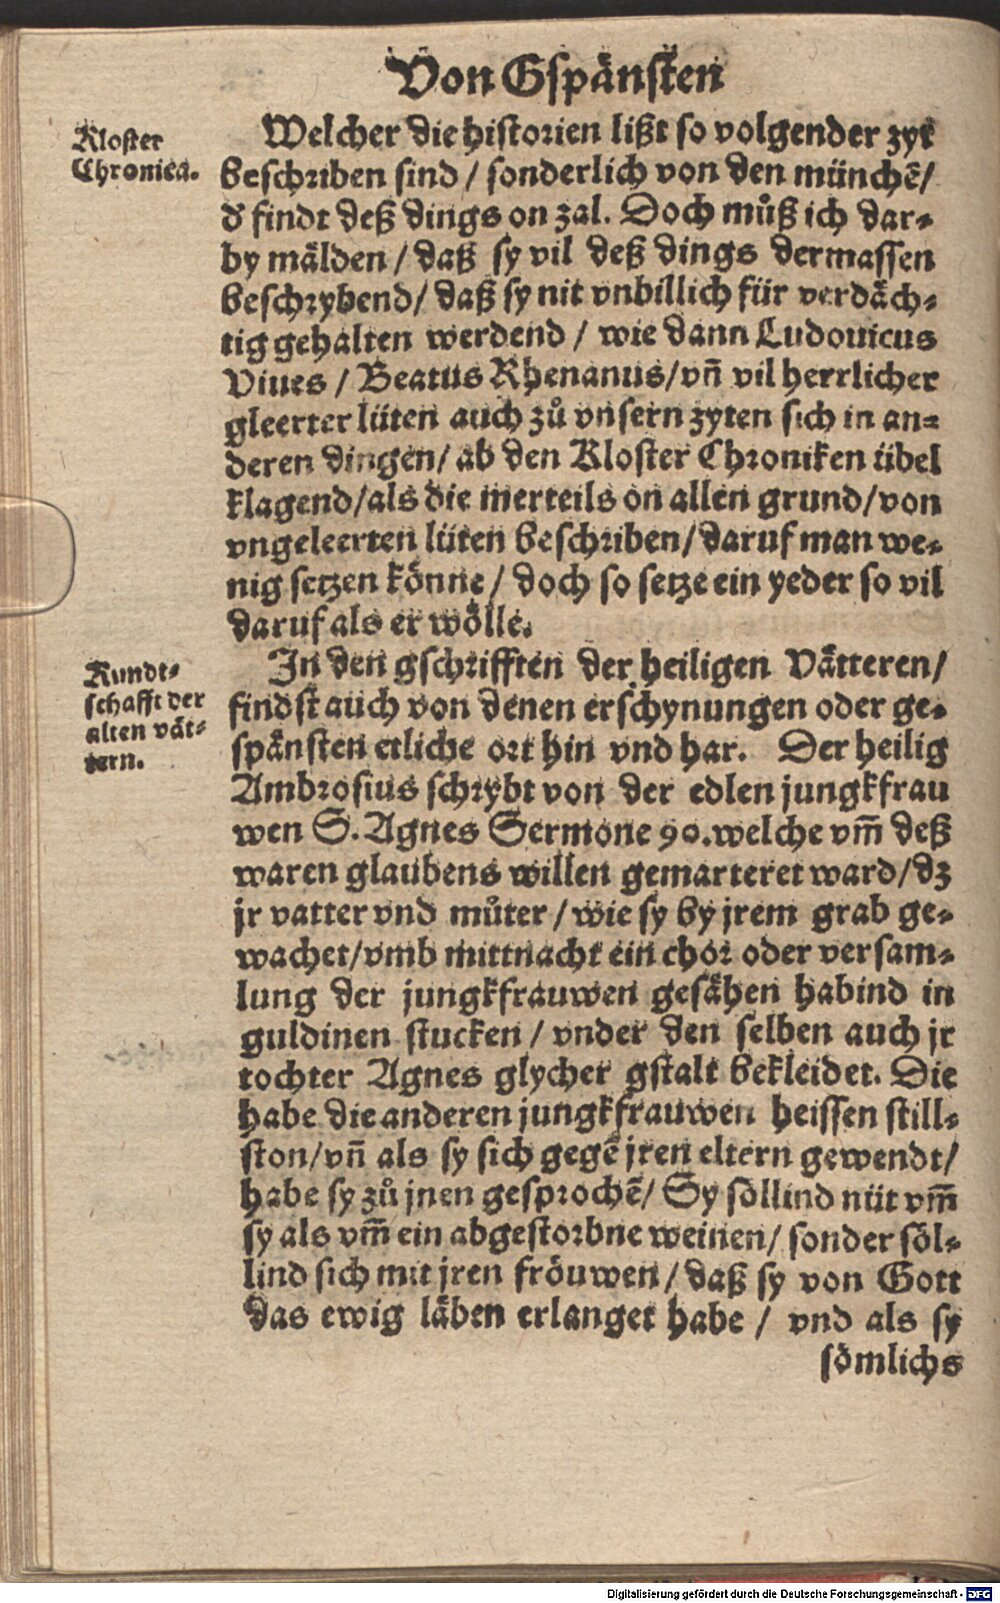 Von Gspänsten
Kloster
Chronica.
Welcher die historien lißt so volgender zyt
beschriben sind / sonderlich von den münchẽ/
d' findt deß dings on zal. Doch můß ich dar-
by mälden / daß sy vil deß dings dermassen
beschrybend / daß sy nit vnbillich für verdäch-
tig gehalten werdend / wie dann Ludouicus
Viues / Beatus Rhenanus/vñ vil herrlicher
gleerter lüten auch zů vnsern zyten sich in an-
deren dingen/ ab den Kloster Chroniken übel
klagend/als die merteils on allen grund/von
vngeleerten lüten beschriben/daruf man we-
nig setzen könne / doch so setze ein yeder so vil
daruf als er wölle.
Kundt-
schafft der
alten vät-
tern.
In den gschrifften der heiligen Vätteren/
findst auch von denen erschynungen oder ge-
spänsten etliche ort hin vnd har. Der heilig
Ambrosius schrybt von der edlen jungkfrau
wen S. Agnes Sermone 90.welche vm̃ deß
waren glaubens willen gemarteret ward/dz
jr vatter vnd můter / wie sy by jrem grab ge-
wachet/vmb mittnacht ein chor oder versam-
lung der jungkfrauwen gesähen habind in
guldinen stucken / vnder den selben auch jr
tochter Agnes glycher gstalt bekleidet. Die
habe die anderen jungkfrauwen heissen still-
ston/vñ als sy sich gegẽ jren eltern gewendt/
habe sy zů jnen gesprochẽ/ Sy söllind nüt vm̃
sy als vm̃ ein abgestorbne weinen/ sonder söl-
lind sich mit jren fröuwen / daß sy von Gott
das ewig läben erlanget habe / vnd als sy
sömlichs
Digitalisierung gefördert durch die Deutsche Forschungsgemeinschaft - DFG